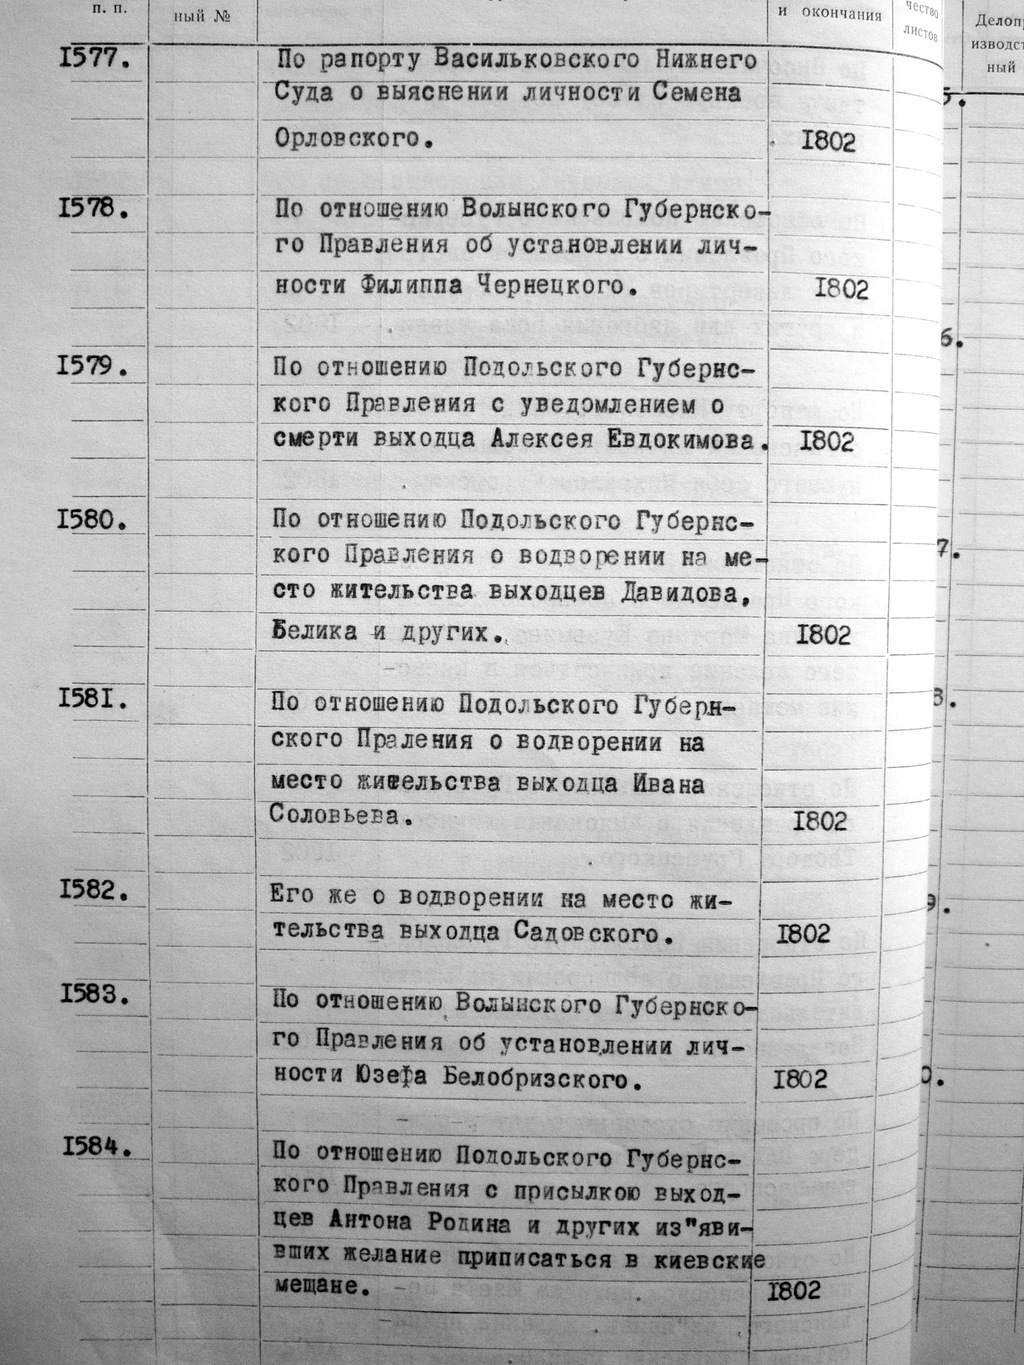 п. п.
ный №
и окончания
чество
листов
Делопр
изводст
ный
1577.
По рапорту Васильковского Нижнего
Суда о выяснении личности Семена
Орловского.
1802
1578.
По отношению Волынского Губернско-
го Правления об установлении лич-
ности Филиппа Чернецкого.
1802
1579.
По отношению Подольского Губернс-
кого Правления с уведомлением о
смерти выходца Алексея Евдокимова.
1802
1580.
По отношению Подольского Губернс-
кого Правления о водворении на ме-
сто жительства выходцев Давидова,
Белика и других.
1802
1581.
По отношению Подольского Губерн-
ского Праления о водворении на
место жительства выходца Ивана
Соловьева.
1802
1582.
Его же о водворении на место жи-
тельства выходца Садовского.
1802
1583.
По отношению Волынского Губернско-
го Правления об установлении лич-
ности Юзефа Белобризского.
1802
1584.
По отношению Подольского Губернс-
кого Правления с присылкою выход-
цев Антона Родина и других из"яви-
вших желание приписаться в киевские
мещане.
1802
5.
6.
7.
8.
9.
0.